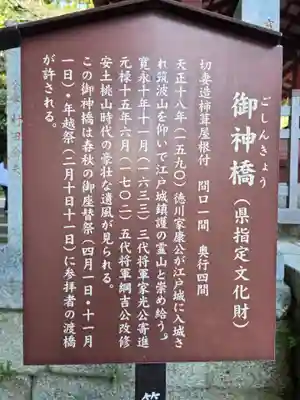 御神橋（県指定文化財）
ごしんきょう
切妻造柿葺屋根付　間口一間　奥行四間
天正十八年（一五九〇）徳川家康公が江戸城に入城さ
れ筑波山を仰いで江戸城鎮護の霊山と崇め給う。
寛永十年十一月（一六三三）三代将軍家光公寄進
元禄十五年六月（一七〇二）五代将軍綱吉公改修
安土桃山時代の豪壮な遺風が見られる。
この御神橋は春秋の御座替祭（四月一日・十一月
一日）・年越祭（二月十日十一日）に参拝者の渡橋
が許される。